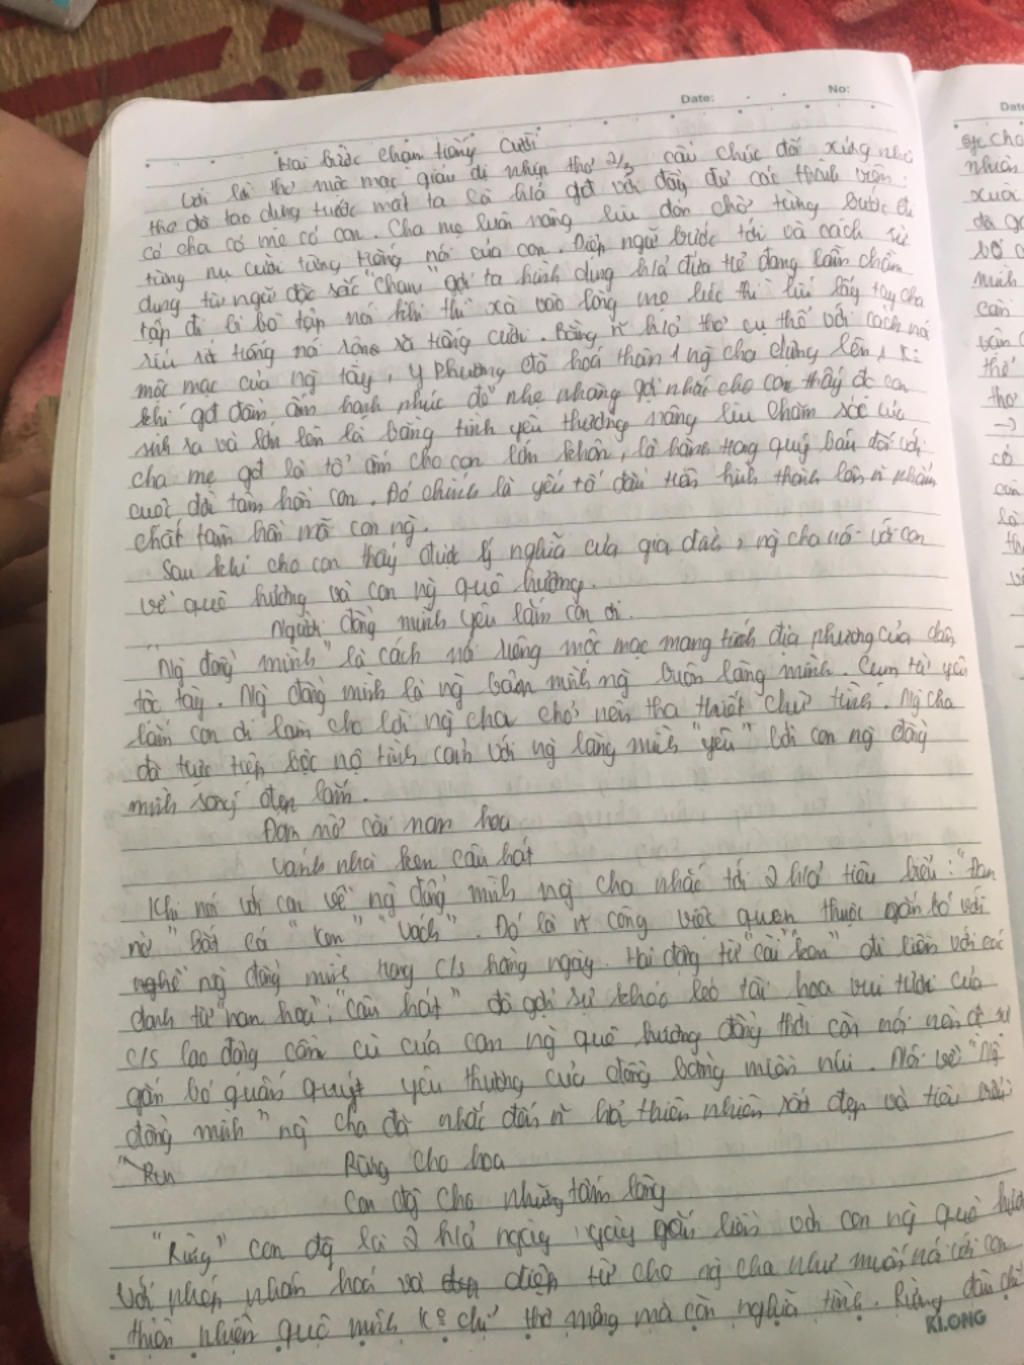 Date: No:
Hai bước chạm tiếng cười
Lời là thơ mộc mạc giản dị nhịp thơ 2/3 câu chúc đối xứng nhà
thơ đã tạo dựng trước mắt ta là h/ả gđ với đầy đủ các thành viên.
có cha có mẹ có con. Cha mẹ luôn nâng lưu đón chờ từng bước đi
từng nụ cười từng tiếng nói của con. Điệp ngữ bước tới và cách sử
dụng từ ngữ đặc sắc "chạm" gợi ta hình dung h/ả đứa trẻ đang lẫm chẫm
tập đi bi bô tập nói khi thì xà vào lòng mẹ lúc thì líu lấy tay cha
ríu rít tiếng nói rộng rã tiếng cười. Bằng n~ h/ả thơ cụ thể với cách nói
mộc mạc của ng tày, Y Phương đã hoá thân 1 ng cha dựng lên k
khí gđ đầm ấm hạnh phúc để nhẹ nhàng gợi nhắc cho con thấy đc con
sinh ra và lớn lên là bằng tình yêu thương nâng lưu chăm sóc của
cha mẹ gđ là tổ ấm cho con lớn khôn, là hành trang quý báu đối với
cuộc đời tâm hồn con. Đó chính là yếu tố đầu tiên hình thành lên n~ phẩm
chất tâm hồn mỗi con ng.
Sau khi cho con thấy được ý nghĩa của gia đình, ng cha nói với con
về quê hương và con ng quê hương.
Người đồng mình yêu lắm con ơi.
"Ng đồng mình" là cách nói riêng mộc mạc mang tính địa phương của dân
tộc tày. Ng đồng mình là ng bản mình ng buôn làng mình. Cụm từ yêu
lắm con ơi làm cho lời ng cha chở nên tha thiết chữ tình. Ng cha
đã trực tiếp bộc nộ tình cảnh với ng làng mình "yêu" bởi con ng đồng
mình sống đẹp lắm.
Đan nờ cài nan hoa
Vánh nhà ken câu hát
Khi nói với con về ng đồng mình ng cha nhắc tới 2 h/ả tiêu biểu: "Đan
nờ" Bắt cá "ken" "vách". Đó là n~ công việc quen thuộc gắn bó với
nghề ng đồng mình trong c/s hàng ngày. Hai động từ "cài" "ken" đi liền với các
danh từ "nan hoa", "câu hát" đã gợi sự khéo léo tài hoa vui tươi của
c/s lao động cần cù của con ng quê hương đồng thời còn nói nên đc sự
gắn bó quấn quýt yêu thương của đồng bằng miền núi. Nói về "Ng
đồng mình" ng cha đã nhắc đến n~ h/ả thiên nhiên rất đẹp và tiêu biểu
Rừng cho hoa
Con đg cho những tấm lòng
"Rừng" con đg là 2 h/ả ngày ngày gắn liền với con ng quê hương
Với phép nhân hoá và điệp từ cho ng cha như muốn nói với con
thiên nhiên quê mình ko chỉ thơ mộng mà còn nghĩa tình. Rừng đâu chỉ
KLONG